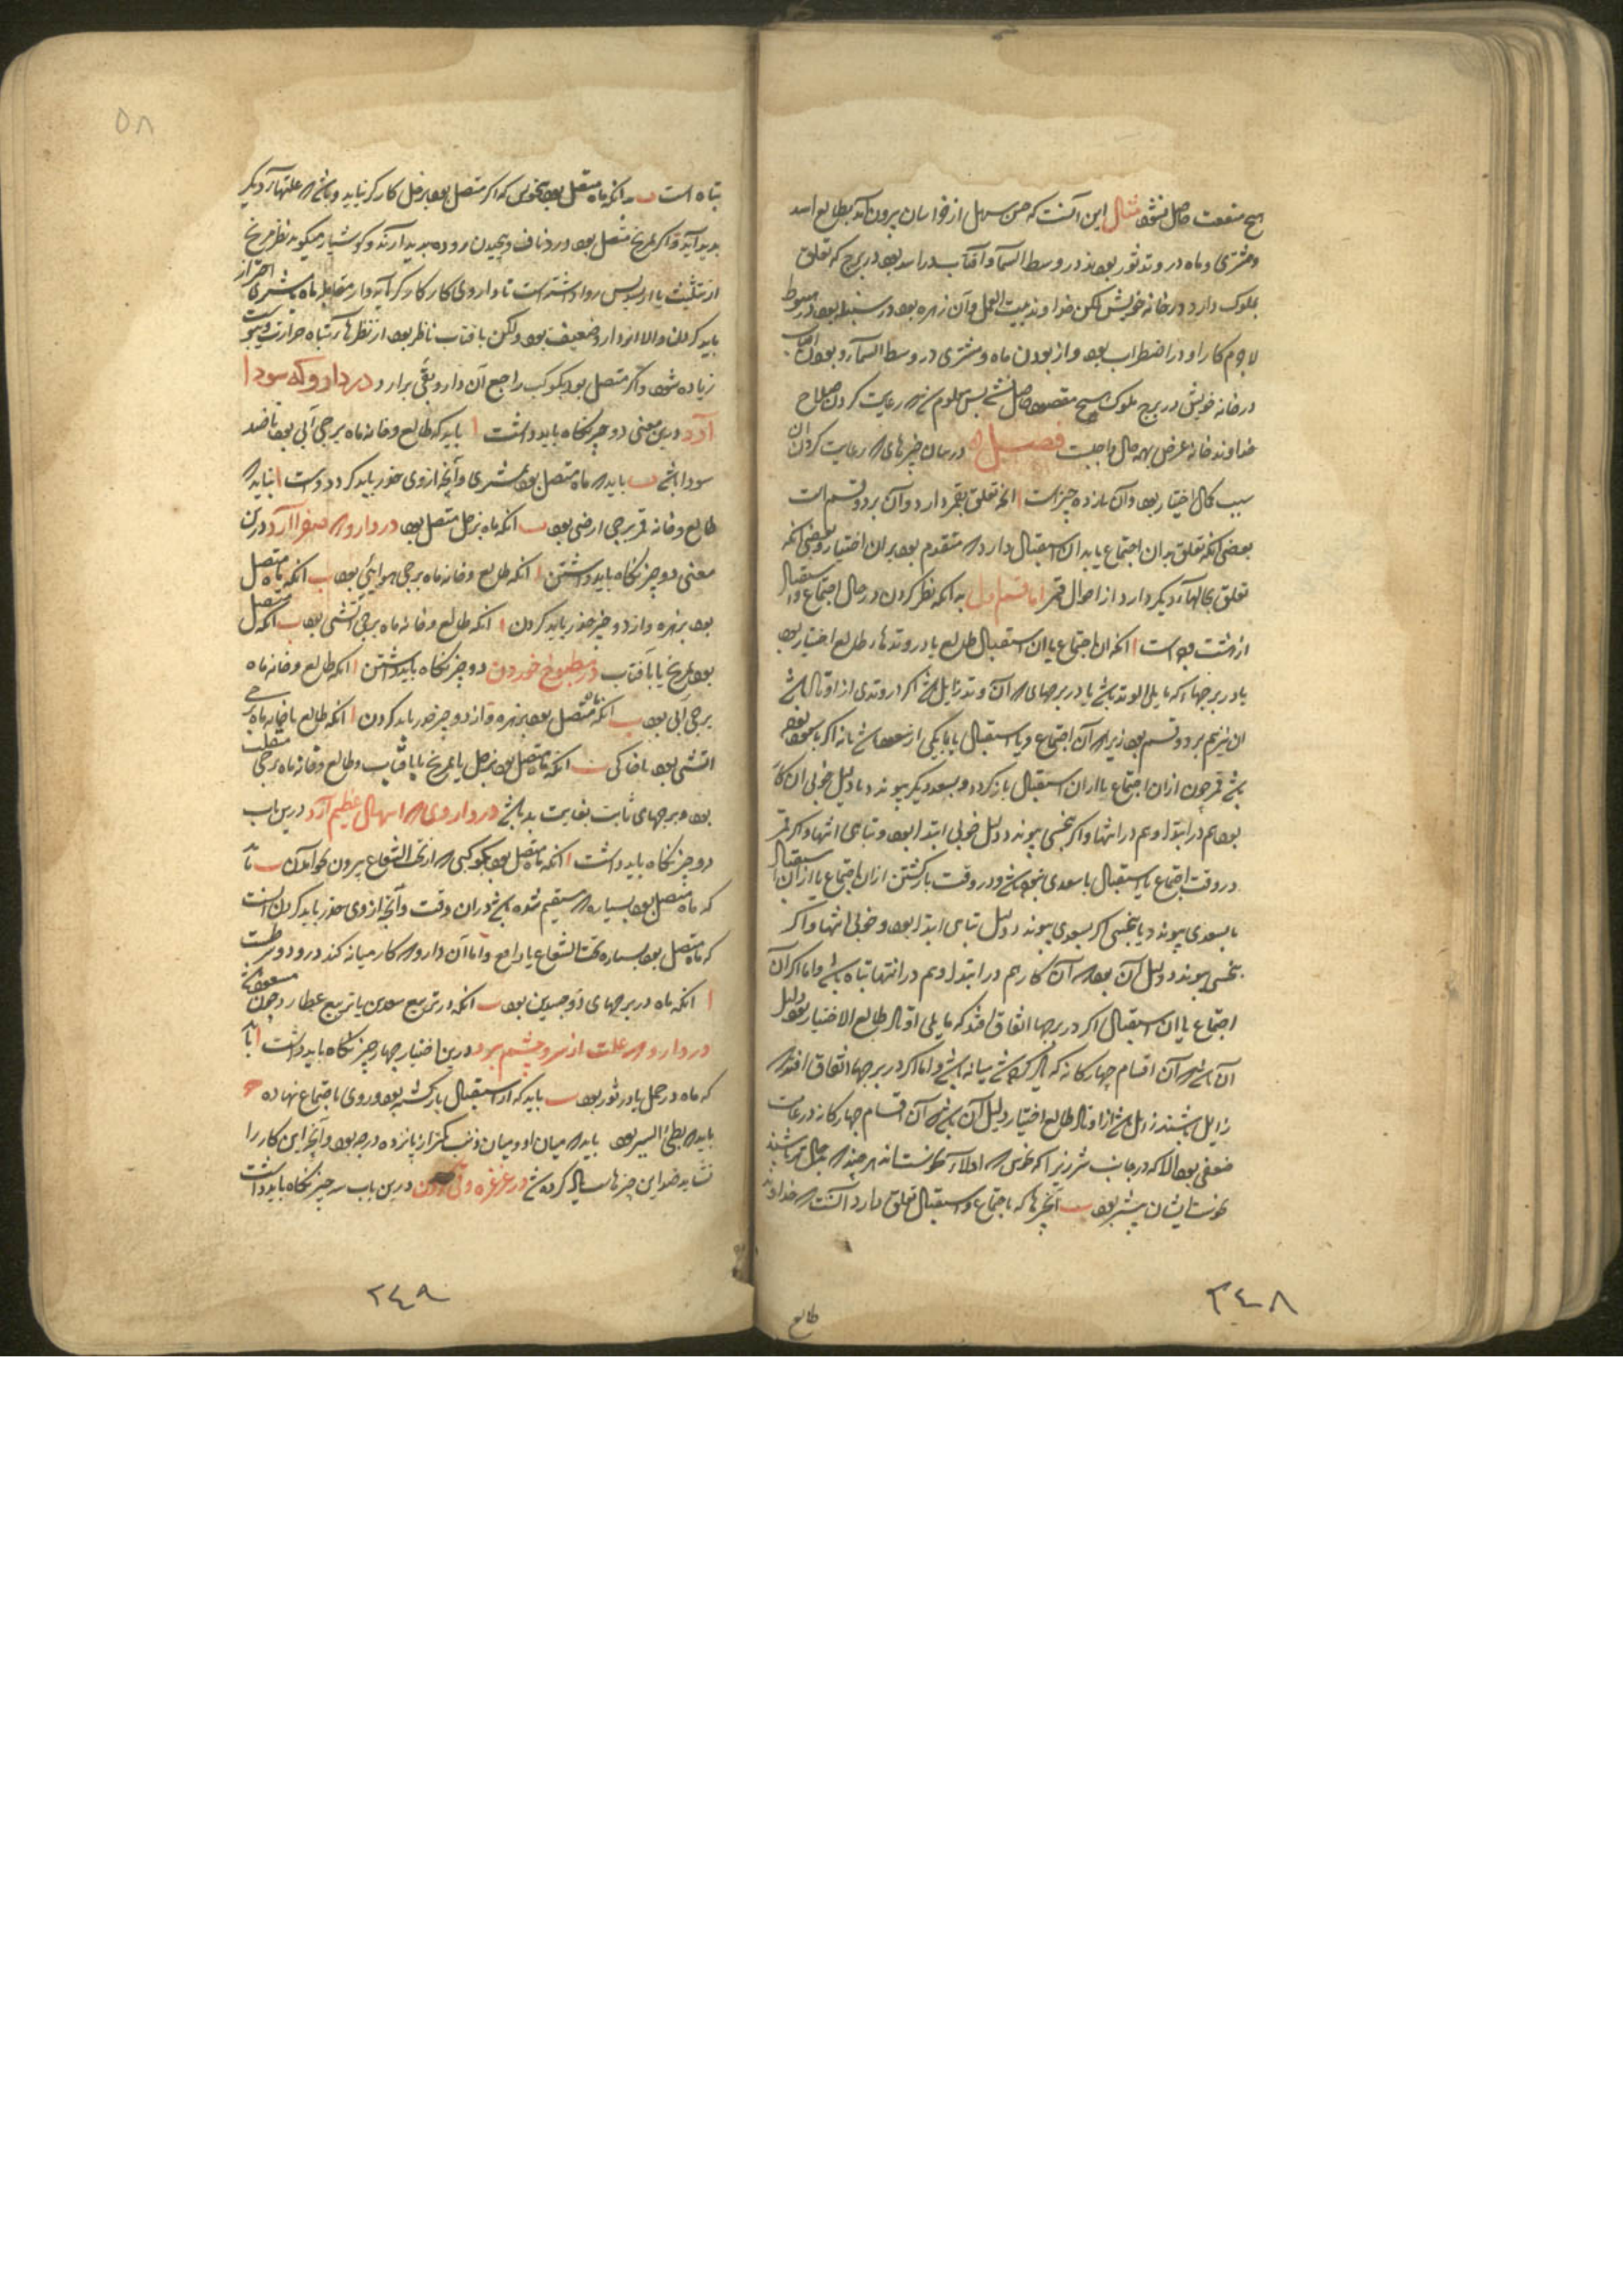 هیچ منفعت حاصل نشود مثال این آنست که حسن سهل از خراسان بیرون آمد بطالع اسد
و مشتری و ماه در وتد ثور بودند در وسط السما و آفتاب در اسد بود در برج که تعلق
بملوک دارد در خانه خویش لکن خداوند بیت العمل و آن زهره بود در سنبله بود در هبوط
لاجرم کار او در اضطراب بود و از بودن ماه و مشتری در وسط السما و بودن آفتاب
در خانه خویش در برج ملوک هیچ مقصود حاصل نشد پس معلوم شد که رعایت کردن صلاح
خداوند خانه غرض بهمه حال واجبست فصل در بیان چیزهای که رعایت کردن آن
سبب کمال اختیار بود و آن یازده چیز است ا آنچه تعلق بقمر دارد و آن بر دو قسم است
بعضی آنکه تعلق بدان اجتماع یا بدان استقبال دارد که متقدم بود بران اختیار و بعضی آنکه
تعلق بحالهاء دیگر دارد از احوال قمر اما قسم اول به آنکه نظر کردن در حال اجتماع و استقبال
ا آنکه ان اجتماع یا ان استقبال طالع یا در وتدهاء طالع اختیار بود
یا در برجهاء که مایلی الوتد باشد یا در برجهای که آن وتد زایل باشد اگر در وتدی از اوتاد باشد
ان نیز هم بر دو قسم بود زیرا که آن اجتماع و یا استقبال یا با یکی از سعود باشد یا نه اگر با سعود
باشد قمر چون ازان اجتماع یا ازان استقبال بازگردد و بسعد دیگر پیوندد یا دلیل خوبی ان کار
بود هم در ابتدا و هم در انتها و اگر بنحسی پیوندد دلیل خوبی ابتدا بود و تباهی انتها و اگر قمر
در وقت اجتماع یا استقبال با سعدی نبوده باشد و در وقت بازگشتن ازان اجتماع یا ازان استقبال
یا بسعدی پیوندد یا بنحسی اگر بسعدی پیوندد دلیل تباهی ابتدا بود و خوبی انتها و اگر
بنحسی پیوندد دلیل آن بود که آن کار هم در ابتدا و هم در انتها تباه باشد و اما اگر آن
اجتماع یا ان استقبال اگر در برجها اتفاق افتد که مایلی اوتاد طالع الاختیار بود دلیل
آن باشد که آن اقسام چهارگانه که یاد کرده شد میانه باشد و اما اگر در برجها اتفاق افتد که
زایل باشند زایل باشد از اوتاد طالع اختیار دلیل آن باشد که آن اقسام چهارگانه در غایت
ضعفی بود الا که در جانب شر زیرا که نحوس که
بیشتر بود ب آنچه‌ها که باجتماع و استقبال تعلق دارد آنست که خداوند
طالع
۲۴۸
۵۸
تباه است ب آنکه ماه متصل بود بنحوس که اگر متصل بود بزحل کار کر نیاید و باشد که علتهاء دیگر
پدید آید و اگر بمریخ متصل بود درد ناف و پیچیدن روده پدید آرد و کوشیار میگوید نظر مریخ
از تثلیث یا تسدیس روا داشته است تا داروی کار کار کر آید و از مقابله ماه با مشتری احتراز
باید کردن والا اثر دارو ضعیف بود ولکن بآفتاب ناظر بود از نظرهاء تباه حرارت و یبوست
زیاده شود و اگر متصل بود بکوکب راجع آن دارو بقی برارد در دارو که سودا
آرد درین معنی دو چیز نگاه باید داشت ا باید که طالع و خانه ماه برجی آبی بود تا ضد
سودا باشد ب باید که ماه متصل بود بمشتری و آنچه ازوی حذر باید کرد دو است ا نباید که
طالع و خانه قمر برجی ارضی بود ب آنکه ماه بزحل متصل بود در دارو که صفرا آرد درین
معنی دو چیز نگاه باید داشتن ا آنکه طالع و خانه ماه برجی هوایی بود ب آنکه ماه متصل
بود بزهره و از دو چیز حذر باید کردن ا آنکه طالع و خانه ماه برجی آتشی بود ب آنکه متصل
بود بمریخ یا بآفتاب در مطبوخ خوردن دو چیز نگاه باید داشتن ا آنکه طالع و خانه ماه
برجی آبی بود ب آنکه ماه متصل بود بزهره و از دو چیز حذر باید کردن ا آنکه طالع یا خانه ماه برجی
آتشی بود یا خاکی ب آنکه ماه متصل بود بزحل یا بمریخ یا بآفتاب و طالع و خانه ماه برجی منقلب
بود و برجهای ثابت بغایت بد باشد در داروی که اسهال عظیم آرد درین باب
دو چیز نگاه باید داشت ا آنکه ماه متصل بود بکوکبی که از تحت الشعاع بیرون خواهد آمدن ب باید
که ماه متصل بود بسیاره که مستقیم شده باشد دران وقت و آنچه ازوی حذر باید کردن آنست
که ماه متصل بود بسیاره تحت الشعاع یا راجع و اما آن دارو که کار میانه کند درو دو شرطست
ا آنکه ماه در برجهای ذو جسدین بود ب آنکه در تربیع سعدین یا تربیع عطارد چون مسعود باشد
در دارو که علت از سر و چشم برد درین اختیار چهار چیز نگاه باید داشت ا باید
که ماه در حمل یا در ثور بود ب باید که از استقبال بازگشته بود و روی باجتماع نهاده ج
باید که بطئ السیر بود باید که میان او و میان ذنب کمتر از پانزده درجه بود و آنچه این کار را
نشاید ضد این چیزهاست که یاد کرده شد در غرغره و قی کردن درین باب سه چیز نگاه باید داشت
۲۴۹